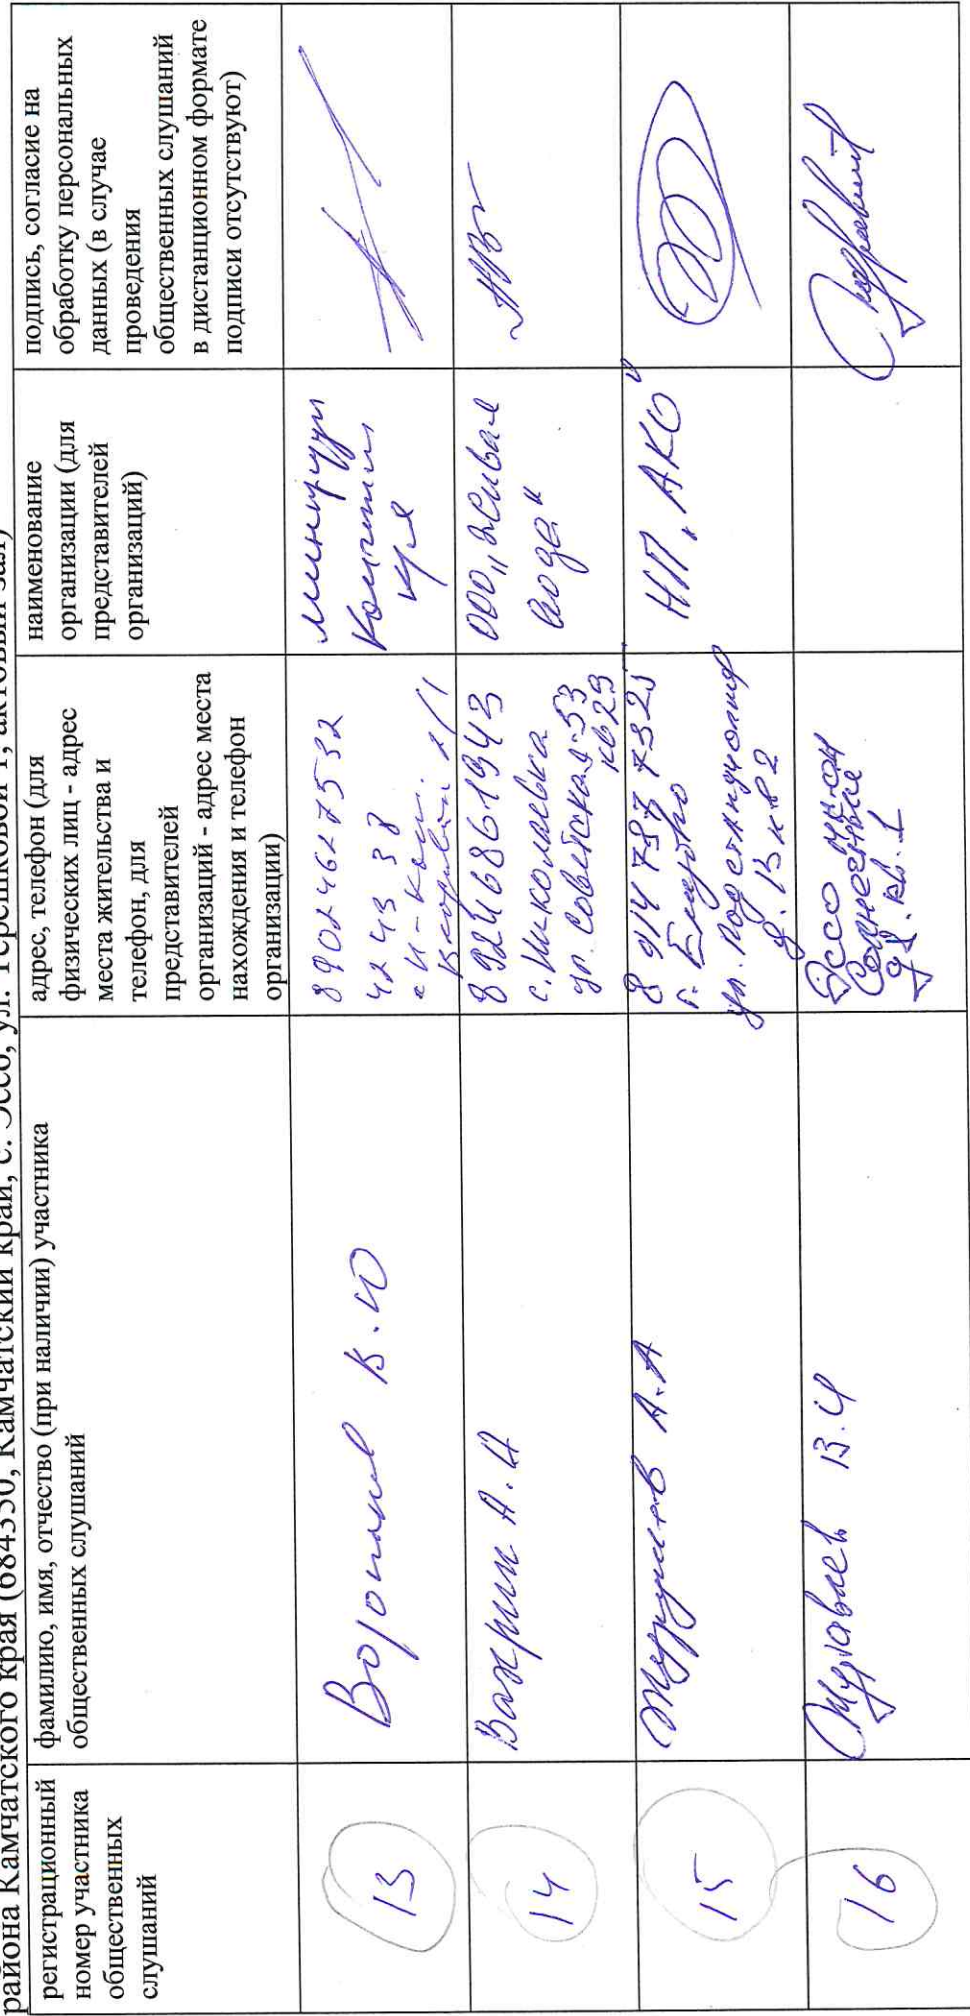 района Камчатского края (684350, Камчатский край, с. Эссо, ул. Терешковой 1, актовый зал)
регистрационный
номер участника
общественных
слушаний
фамилию, имя, отчество (при наличии) участника
общественных слушаний
адрес, телефон (для
физических лиц - адрес
места жительства и
телефон, для
представителей
организаций - адрес места
нахождения и телефон
организации)
наименование
организации (для
представителей
организаций)
подпись, согласие на
обработку персональных
данных (в случае
проведения
общественных слушаний
в дистанционном формате
подписи отсутствуют)
13
В.Ю
89024627532
42 43 38
2/1
края
14
Вахрин А.И
8 9246861943
с. Николаевка
ул. Советская-53
кв 29
ООО „Живая
вода"
15
А.А
8 914 787 7325
г. Елизово
д. 13 кв 2
НП „АКО"
16
Муравьев В.И
Эссо
кв. 1